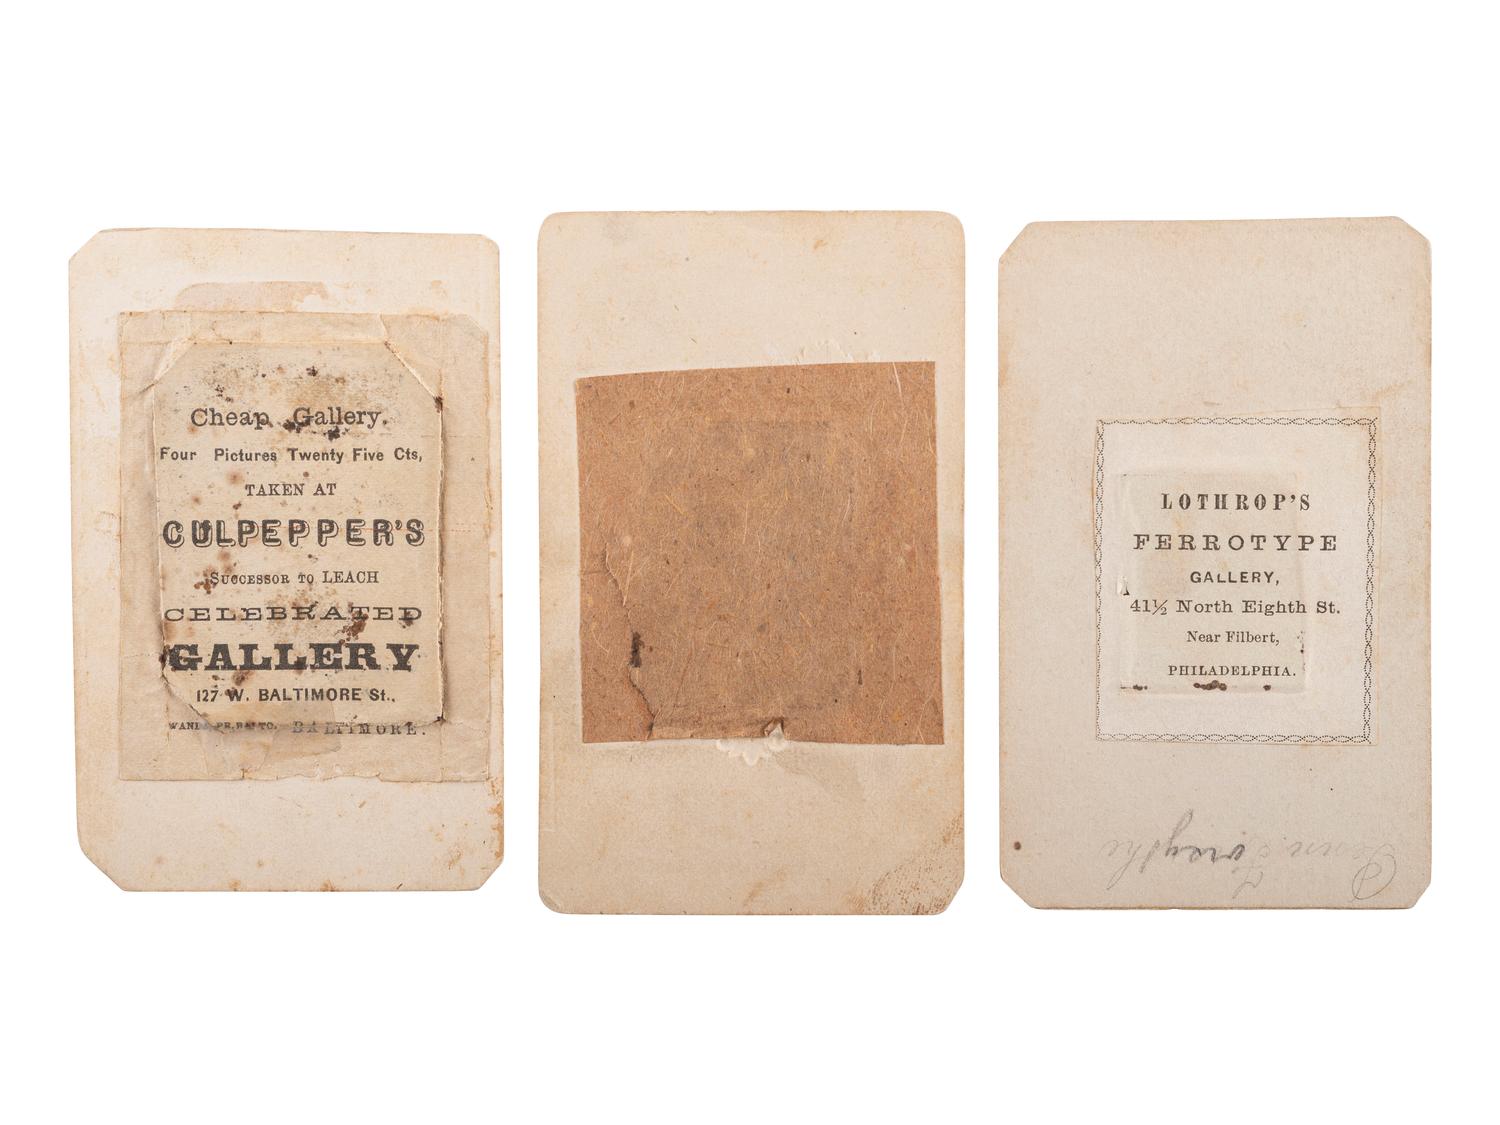 Cheap Gallery.
Four Pictures Twenty Five Cts,
TAKEN AT
CULPEPPER'S
SUCCESSOR TO LEACH
CELEBRATED
GALLERY
127 W. BALTIMORE St.,
BALTIMORE.
LOTHROP'S
FERROTYPE
GALLERY,
41½ North Eighth St.
Near Filbert,
PHILADELPHIA.
Forsythe